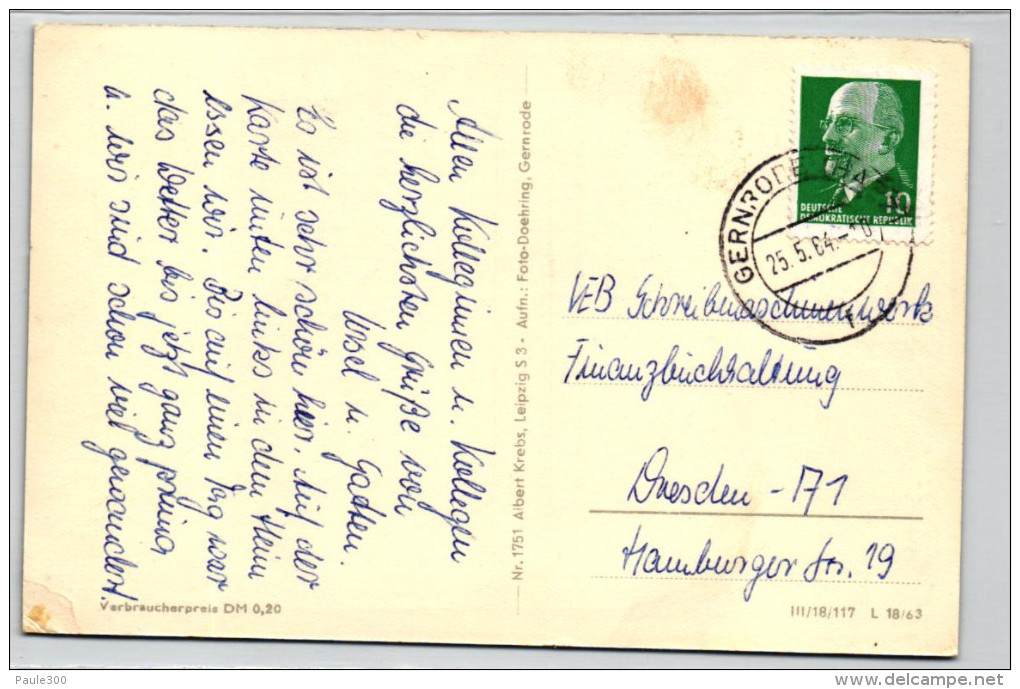 Allen Kolleginnen u. Kollegen
die herzlichsten Grüße von
Ursel u. Gatten.
Es ist sehr schön hier. Auf der
Karte unten links in dem Heim
essen wir. Bis auf einen Tag war
das Wetter bis jetzt ganz prima
u. wir sind schon viel gewandert.
Verbraucherpreis DM 0,20
Nr. 1751 Albert Krebs, Leipzig S 3 - Aufn.: Foto-Doehring, Gernrode
10
DEUTSCHE
DEMOKRATISCHE REPUBLIK
GERNRODE
25.5.64.-10
VEB Schreibmaschinenwerk
Finanzbuchhaltung
Dresden - A 1
Hamburger Str. 19
III/18/117 L 18/63
Paule300
delcampe.net